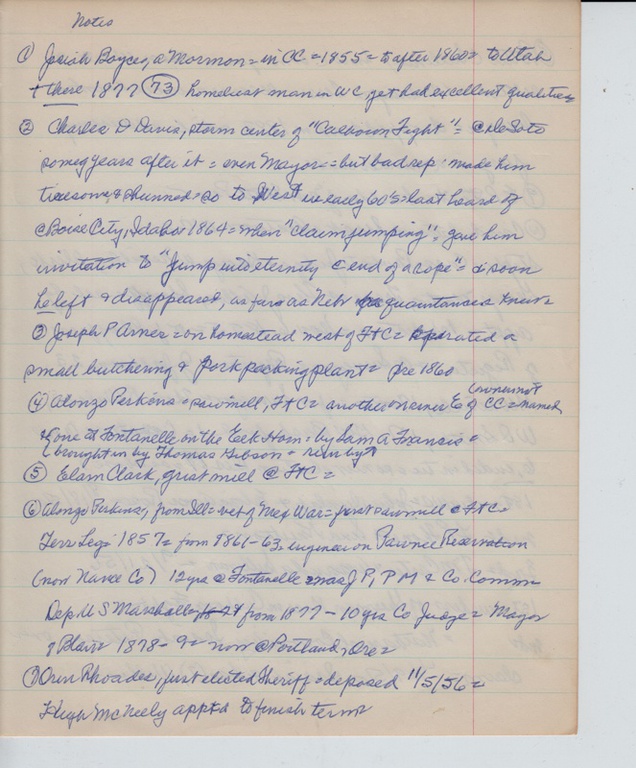 Notes
① Josiah Boyce, a Mormon = in CC = 1855 = to after 1860 = to Utah
+ there 1877 (73) homeliest man in WC, yet had excellent qualities
② Charles D Davis, storm center of "Calhoun Fight" = @ DeSoto
some years after it = even Mayor = but bad rep made him
tiresome & shunned = so to West in early 60's = last heard of
@ Boise City, Idaho 1864 = when "claim jumping" = gave him
invitation to "Jump into eternity @ end of a rope" = so soon
he left & disappeared, as far as Nebr acquaintances knew
③ Joseph P Arnes = on homestead west of FtC = operated a
small butchering & pork packing plant = pre 1860
④ Alonzo Perkins = sawmill, FtC = another = owner E of CC = named
owner not
& one at Fontanelle on the Elk Horn = by Sam A Francis =
(brought in by Thomas Gibson = run by ↑
⑤ Elam Clark, grist mill @ FtC =
⑥ Alonzo Perkins, from Ill = vet of Mex War = first sawmill @ FtC =
Terr Leg = 1857 = from 1861-63 = engineer on Pawnee Reservation
(now Nance Co) 12 yrs @ Fontanelle = was J P, P M & Co. Comm
Dep U S Marshall from 1877 - 10 yrs Co Judge = Mayor
of Blair 1878 - 9 = now @ Portland, Ore =
⑦ Orin Rhoades, first elected Sheriff = deposed 11/5/56 =
Hugh McNeely apptd to finish term =